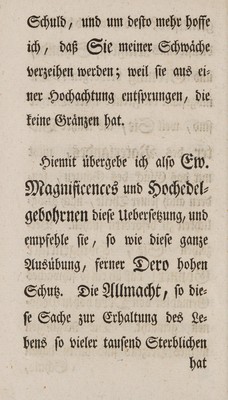 Schuld, und um desto mehr hoffe
ich, daß Sie meiner Schwäche
verzeihen werden; weil sie aus ei-
ner Hochachtung entsprungen, die
keine Gränzen hat.
Hiemit übergebe ich also Ew.
Magnificences und Hochedel-
gebohrnen diese Uebersetzung, und
empfehle sie, so wie diese ganze
Ausübung, ferner Dero hohen
Schutz. Die Allmacht, so die-
se Sache zur Erhaltung des Le-
bens so vieler tausend Sterblichen
hat